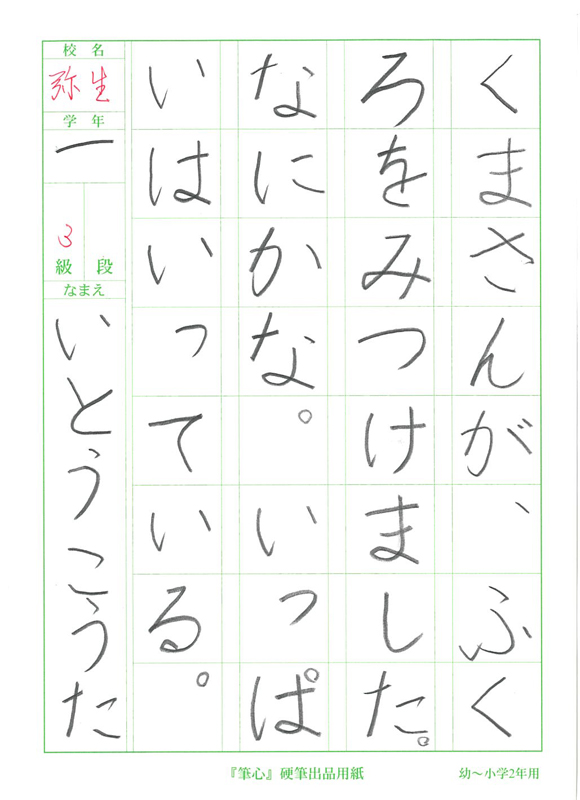 くまさんが、ふく
ろをみつけました。
なにかな。いっぱ
いはいっている。
校名
弥生
学年
一
3
級
段
なまえ
いとうこうた
『筆心』硬筆出品用紙
幼〜小学2年用